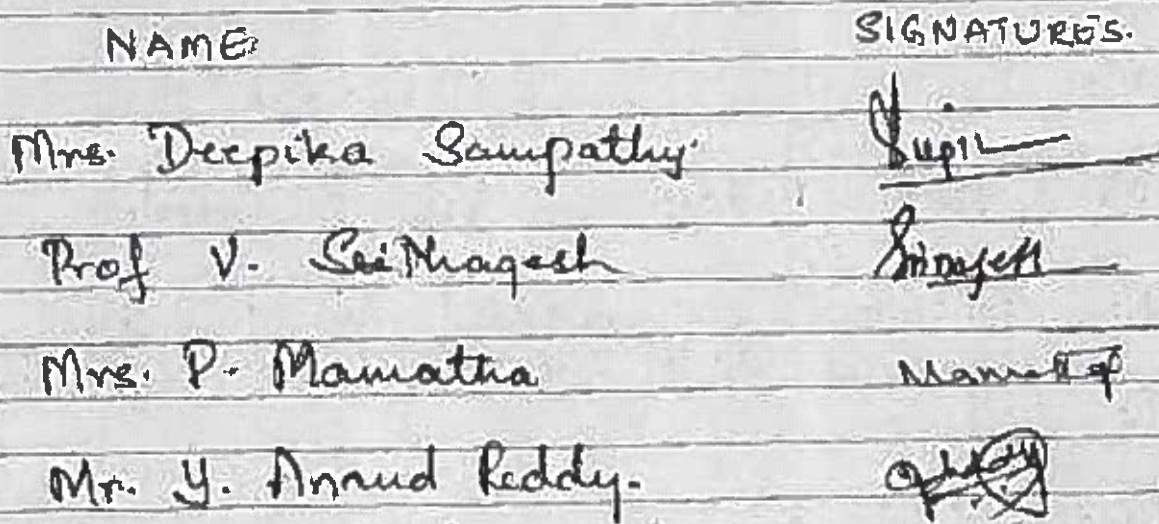 NAME SIGNATURES.
Mrs. Deepika Sampathy
Prof V. Sri Nagesh
Mrs. P. Mamatha
Mr. Y. Anrud Reddy.